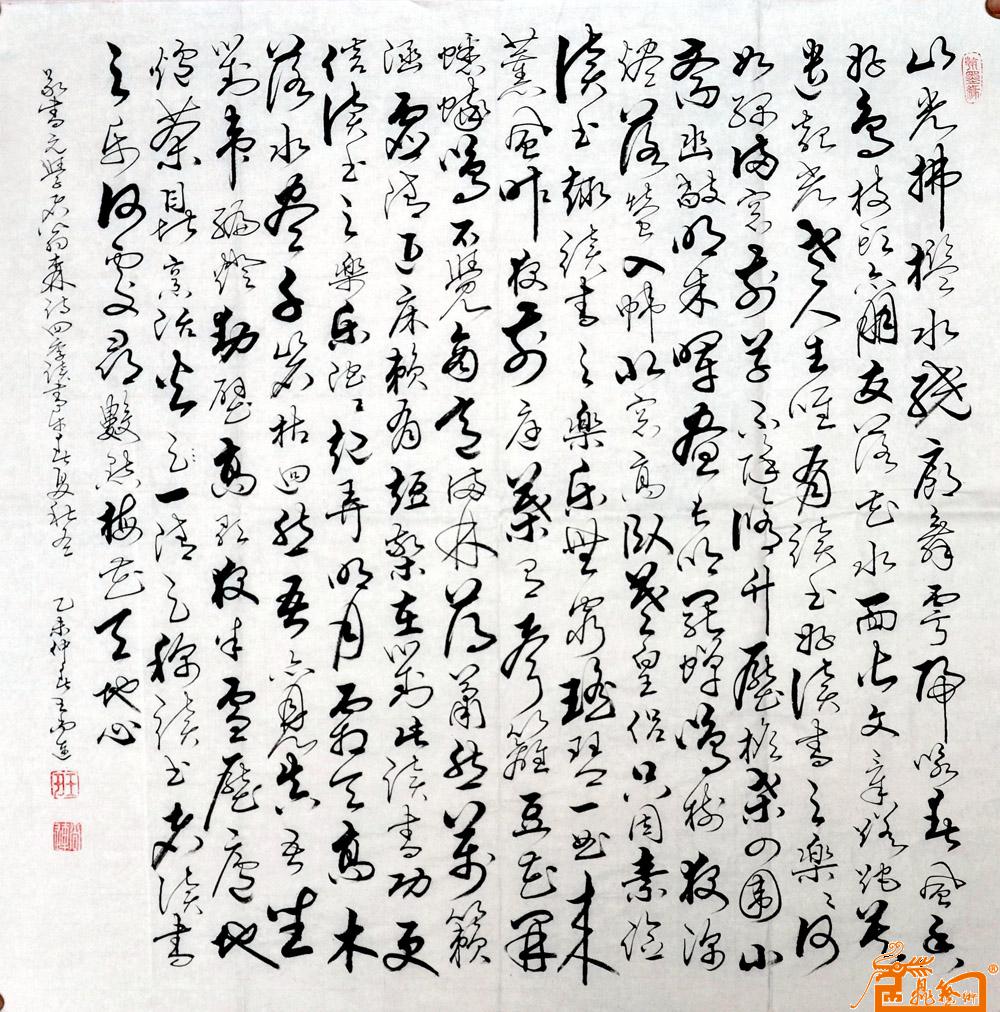 山光拂檻水繞廊舞雩歸詠春風香
好鳥枝頭亦朋友落花水面皆文章蹉跎莫
遣韶光老人生唯有讀書好讀書之樂樂何
如綠滿窗前草不除修竹壓檐桑四圍小
齋幽敞明朱暉晝長吟罷蟬鳴樹夜深
燼落螢入幃北窗高臥羲皇侶只因素稔
讀書趣讀書之樂樂無窮瑤琴一曲來
薰風昨夜前庭葉有聲籬豆花開
蟋蟀鳴不覺商意滿林薄蕭然萬籟
涵虛清近床賴有短檠在對此讀書功更
倍讀書之樂樂陶陶起弄明月霜天高木
落水盡千崖枯迥然吾亦見真吾坐
對韋編燈動壁高歌夜半雪壓廬地
爐茶鼎烹活火一清足稱讀書者讀書
之樂何處尋數點梅花天地心
敬書元學者翁森詩四季讀書樂春夏秋冬 乙未仲春王